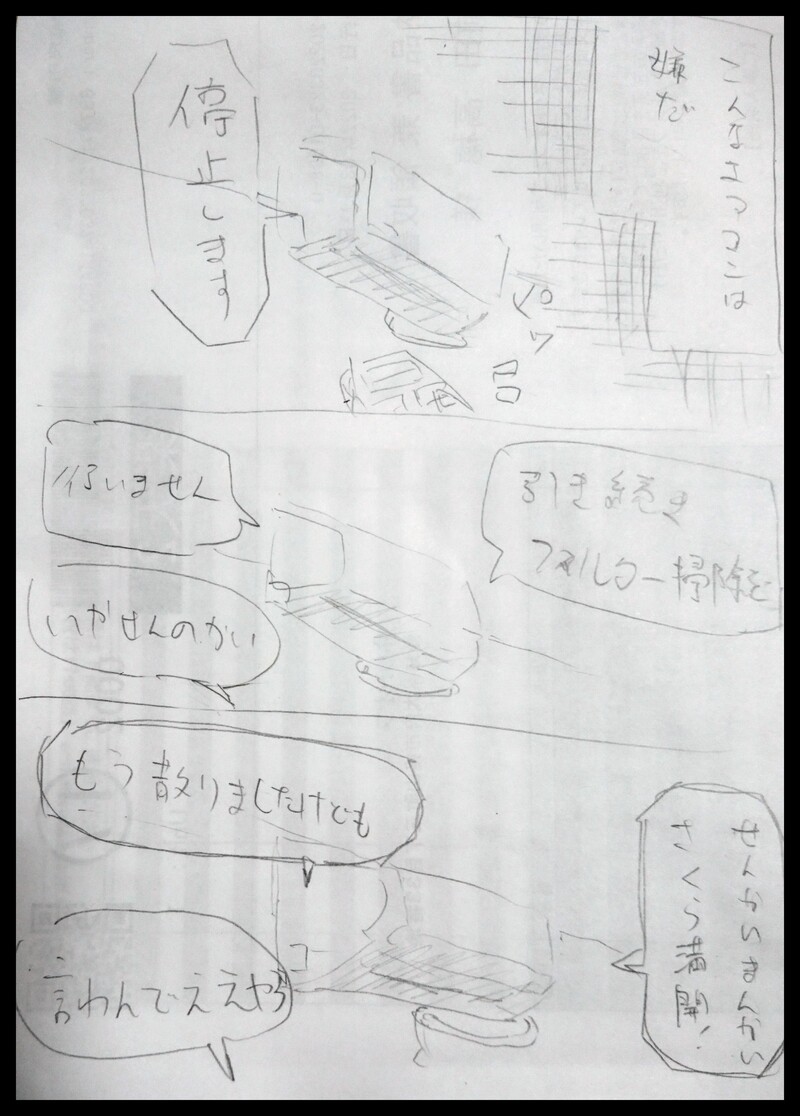 こんなエアコンは
嫌だ
ピッ
停止します
引き続き
フィルター掃除を
行いません
いやせんのかい
せんかいまんかい
さくら満開!
もう散りましたけども
言わんでええやろ